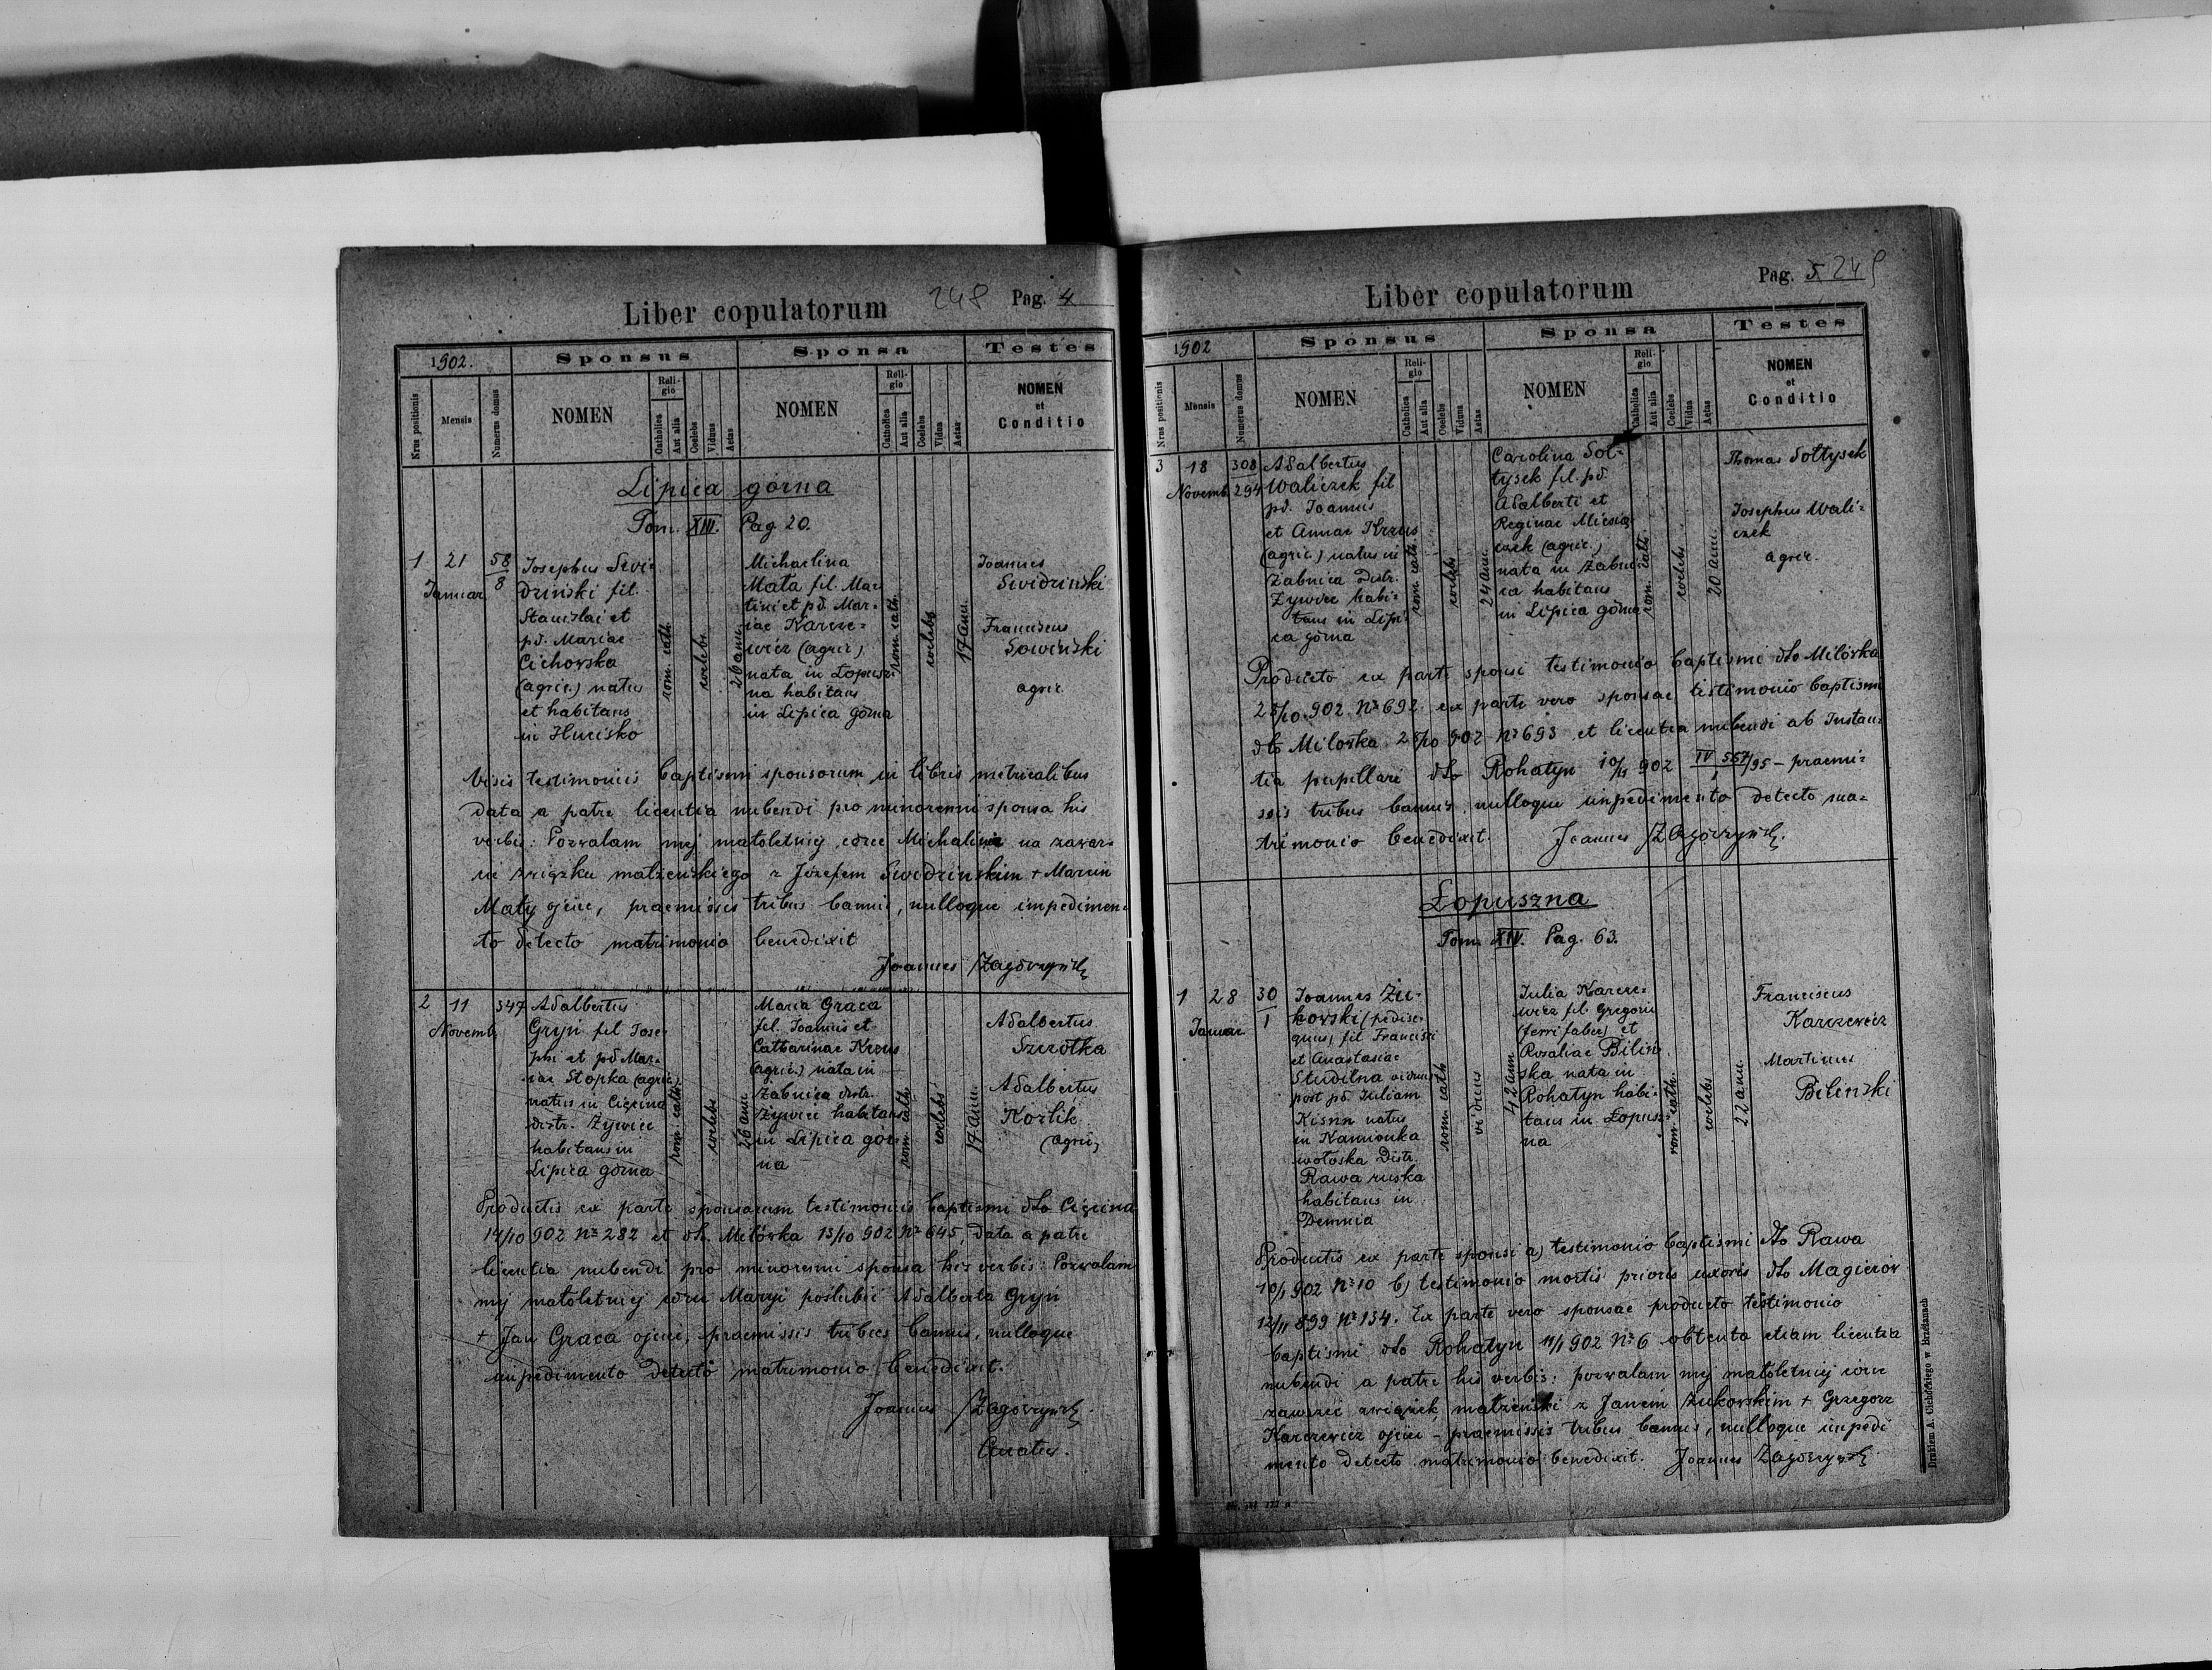 Liber copulatorum
248 Pag. 4
1902.
Sponsus
Sponsa
Testes
Nrus positionis
Mensis
Numerus domus
NOMEN
Religio
Catholica
Aut alia
Coelebs
Viduus
Aetas
NOMEN
Religio
Catholica
Aut alia
Coelebs
Vidua
Aetas
NOMEN
et
Conditio
Lipica górna
Tom. XIII. Pag 20.
1
21
Januar
58
8
Josephus Świ-
drinski fil.
Stanislai et
pd. Mariae
Cichowska
(agric.) natus
et habitans
in Hucisko
rom. cath.
coelebs
26 ann.
Michaelina
Mata fil. Mar
tini et pd. Mar-
iae Karcze-
wicz (agric)
nata in Łopusz-
na habitans
in Lipica górna
rom. cath.
coelebs
17 ann.
Joannes
Swidrinski
Franciscus
Sowinski
agric.
Visis testimoniis baptismi sponsorum in libris metricalibus
data a patre licentia nubendi pro minorenni sponsa his
verbis: Pozwalam mej małoletniej córce Michalinie na zawar-
cie związku małżeńskiego z Józefem Swidrinskim + Marcin
Maty ojciec, praemissis tribus bannis, nulloque impedimen-
to detecto matrimonio benedixit
Joannes
2
11
Novemb.
347
Adalbertus
Gryń fil Jose-
phi et pd Mar-
iae Stopka (agric)
natus in Cięcina
distr. Żywiec
habitans in
Lipica górna
rom. cath.
coelebs
26 ann.
Maria Graca
fil. Joannis et
Catharinae Krzus
(agric.) nata in
Żabnica distr.
Żywiec habitans
in Lipica gór-
na
rom. cath.
coelebs
17 ann.
Adalbertus
Szczotka
Adalbertus
Kozlik
(agric)
Productis ex parte sponsorum testimoniis baptismi dto Cięcina
14/10 902 No 282 et dto. Milówka 13/10 902 No 645, data a patre
licentia nubendi pro minorenni sponsa his verbis: Pozwalam
mej małoletniej córce Maryi poślubić Adalberta Gryń
+ Jan Graca ojciec, praemissis tribus bannis, nulloque
impedimento detecto matrimonio benedixit.
Joannes
Curatus.
Liber copulatorum
Pag. 5 249
1902
Sponsus
Sponsa
Testes
Nrus positionis
Mensis
Numerus domus
NOMEN
Religio
Catholica
Aut alia
Coelebs
Viduus
Aetas
NOMEN
Religio
Catholica
Aut alia
Coelebs
Vidua
Aetas
NOMEN
et
Conditio
3
18
Novemb.
308
294
Adalbertus
Waliczek fil
pd. Joannis
et Annae Krzus
(agric.) natus in
Żabnica distr.
Żywiec habi-
tans in Lipi-
ca górna
rom. cath.
coelebs
24 ann.
Carolina Soł-
tysek fil. pd.
Adalberti et
Reginae Miesią-
czek (agric.)
nata in Żabni-
ca habitans
in Lipica górna
rom. cath.
coelebs
20 ann.
Thomas Sołtysek
Josephus Wali-
czek
agric.
Producto ex parte sponsi testimonio baptismi dto Milówka
25/10 902 No 692. ex parte vero sponsae testimonio baptismi
dto Milówka 25/10 902 No 693 et licentia nubendi ab Instan-
tia pupillari dto Rohatyn 10/11 902 IV 557/95 - praemi-
ssis tribus bannis, nulloque impedimento detecto ma-
trimonio benedixit.
Joannes
Łopuszna
Tom. XIV. Pag. 63.
1
28
Januar
30
1
Joannes Żu-
kowski (pedise-
quus) fil Francisci
et Anastasiae
Studilna viduus
post pd. Juliam
natus
in Kamionka
wołoska Distr.
Rawa ruska
habitans in
Demnia
rom. cath
viduus
42 ann.
Julia Karcze-
wicz fil Gregorii
(ferri faber) et
Rozaliae Bilin-
ska nata in
Rohatyn habi-
tans in Łopusz-
na
rom. cath.
coelebs
22 ann.
Franciscus
Karczewicz
Martinus
Bilinski
Productis ex parte sponsi a) testimonio baptismi dto Rawa
10/1 902 No 10 b) testimonio mortis prioris uxoris dto Magierów
12/11 899 No 134. Ex parte vero sponsae producto testimonio
baptismi dto Rohatyn 11/1 902 No 6 obtenta etiam licentia
nubendi a patre his verbis: pozwalam mej małoletniej córce
zawrzeć związek małżeński z Janem Żukowskim + Grzegorz
Karczewicz ojciec - praemissis tribus bannis, nulloque impedi
mento detecto matrimonio benedixit. Joannes
Drukiem A. Cichockiego w Brzeżanach